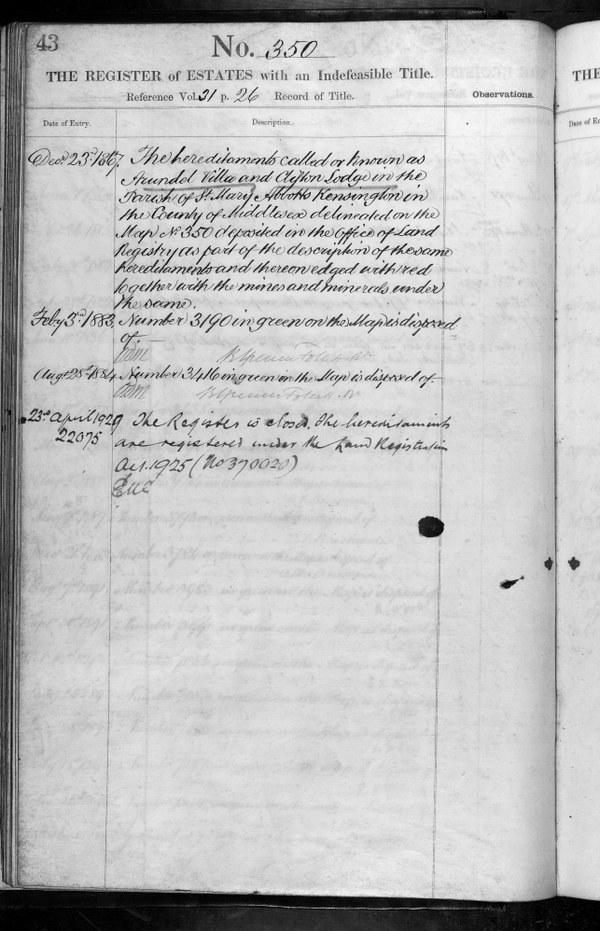 43
No. 350
THE REGISTER of ESTATES with an Indefeasible Title.
Reference Vol. 21 p. 26 Record of Title.
Observations.
Date of Entry.
Description.
Decr. 23rd. 1867.
The hereditaments called or known as
Arundel Villa and Clifton Lodge in the
Parish of St. Mary Abbotts Kensington in
the County of Middlesex delineated on the
Map No. 350 deposited in the Office of Land
Registry as part of the description of the same
hereditaments and thereon edged with red
together with the mines and minerals under
the same.
Feby 3rd. 1883.
Number 3190 in green on the Map is disposed
of.
Augt 28th. 1884.
Number 3416 in green on the Map is disposed of.
23rd April 1929
22075
The Register is closed. The hereditaments
are registered under the Land Registration
Act. 1925 (No 370020)
THE
Date of E